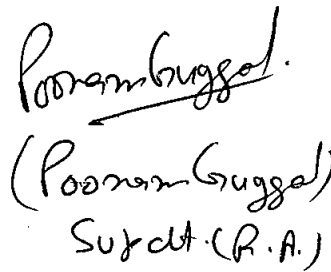 Poonam Guggal.
(Poonam Guggal)
Supdt. (R.A.)